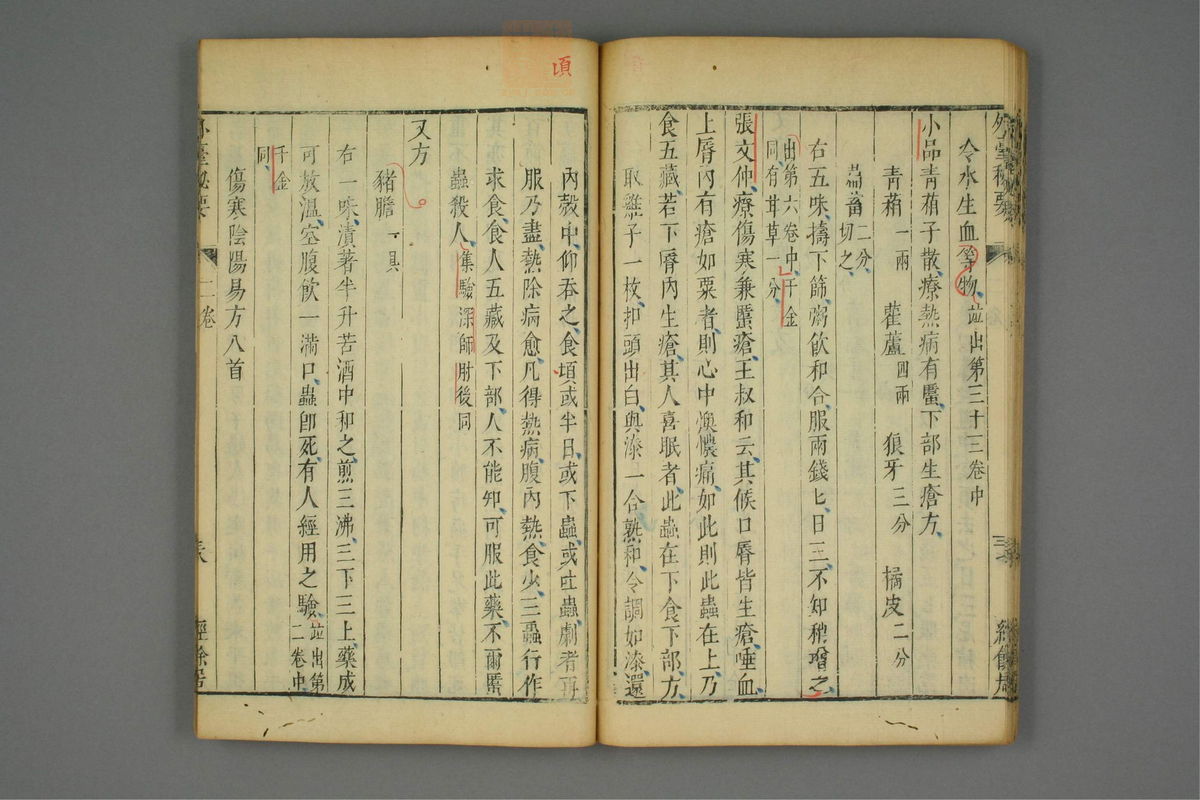 冷水生血等物、並出第三十三卷中
小品青葙子散、療熱病有䘌、下部生瘡方、
青葙一兩 雚蘆四兩 狼牙三分 橘皮二分
萹蓄二分、切之
右五味、擣下篩、粥飲和合、服兩錢匕、日三、不知稍增之、
出第六卷中、千金
同、有茸草一分、
張文仲、療傷寒兼䘌瘡、王叔和云、其候口脣皆生瘡、唾血、
上脣內有瘡如粟者、則心中懊憹痛、如此則此蟲在上、乃
食五藏、若下脣內生瘡、其人喜眠者、此蟲在下、食下部、方、
取雞子一枚、扣頭出白、與漆一合熟和、令調如漆、還
項
內殼中、仰吞之、食頃、或半日、或下蟲、或吐蟲、劇者再
服乃盡、熱除病愈、凡得熱病、腹內熱、食少、三蟲行作
求食、食人五藏及下部、人不能知、可服此藥、不爾䘌
蟲殺人、集驗深師肘後同
又方
豬膽一具
右一味、漬著半升苦酒中和之、煎三沸、三下三上、藥成
可放溫、空腹飲一滿口、蟲即死、有人經用之驗、並出第
二卷中、
千金
同、
傷寒陰陽易方八首
二卷
經餘居